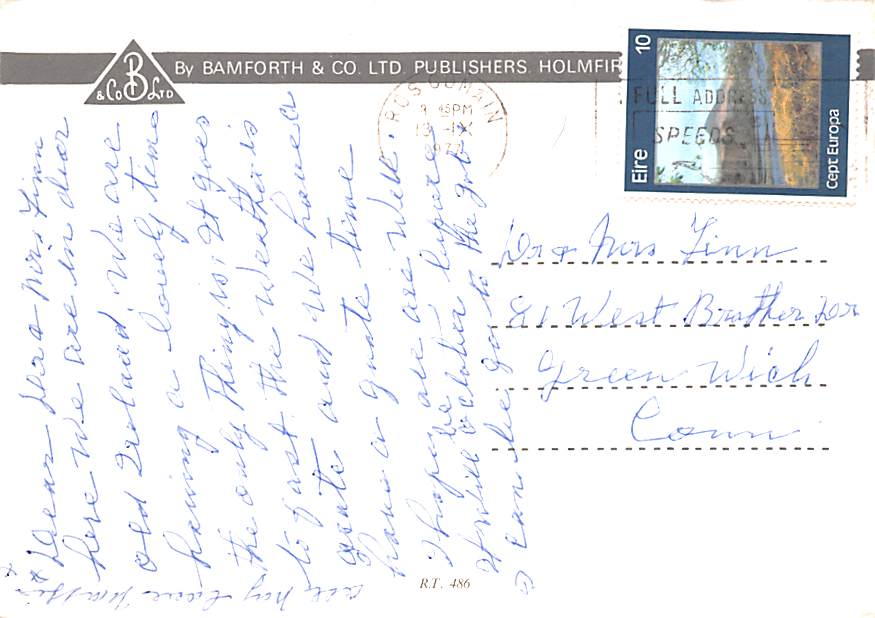 By BAMFORTH & CO. LTD. PUBLISHERS. HOLMFIR
& Co B LTD
ROSCOMAIN
45PM
IX
FULL ADDRESS
SPEEDS
Eire 10
Cept Europa
Dear Dr & Mrs Finn
here We are in dear
old Ireland. We are
having a lovely time
the only Thing is, it goes
to fast. the Weather is
grate and We have a
have a grate time
I hope all are Well.
it Will be october before
I can be go to the job
all my Love
Dr & Mrs Finn
81 West Brother Dr
Green Wich
Conn
R.T. 486